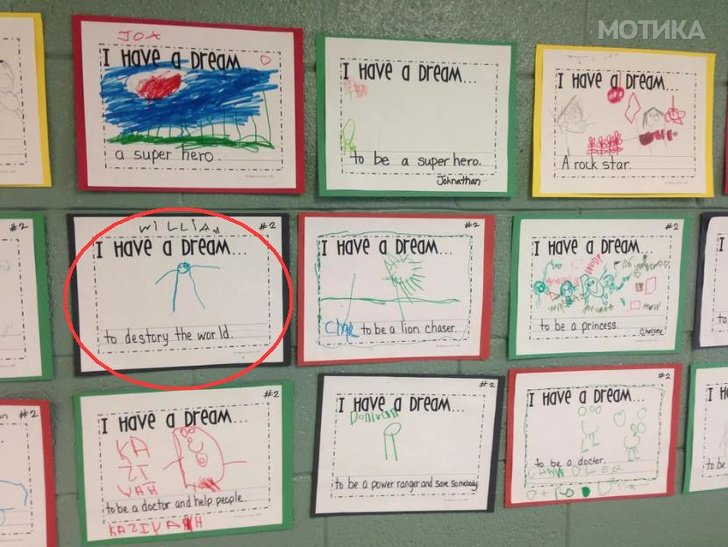 МОТИКА
JOX
I Have a Dream
a super hero
I Have a Dream...
to be a super hero.
Johnathan
I Have a Dream...
A rock star.
#2
WILLIAM #2
I Have a Dream...
to destory the world.
#2
I Have a Dream...
to be a lion chaser.
#2
I Have a Dream...
to be a princess.
Chelsne
#2
#2
I Have a Dream...
KA
ZI
VAH
to be a doctor and help people.
KAZIVAH
#2
I Have a Dream...
to be a power ranger and save somebody.
#2
I Have a Dream...
to be a doctor.
I
to be